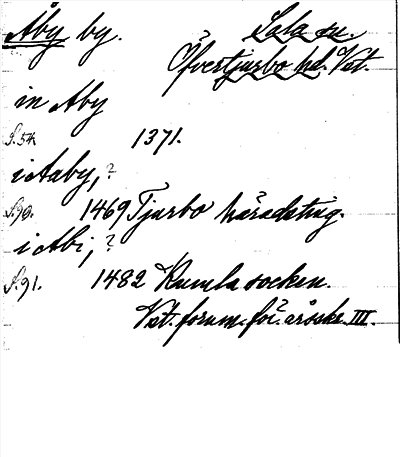 Åby by. Sala sn.
Öfvertjurbo hd. Vst.
in Aby
S. 54 1371.
i Aaby, ?
S. 90. 1469 Tjurbo häradsting.
i Abi, ?
S. 91. 1482 Kumla socken.
Vst. fornm.för. årsskr. III.